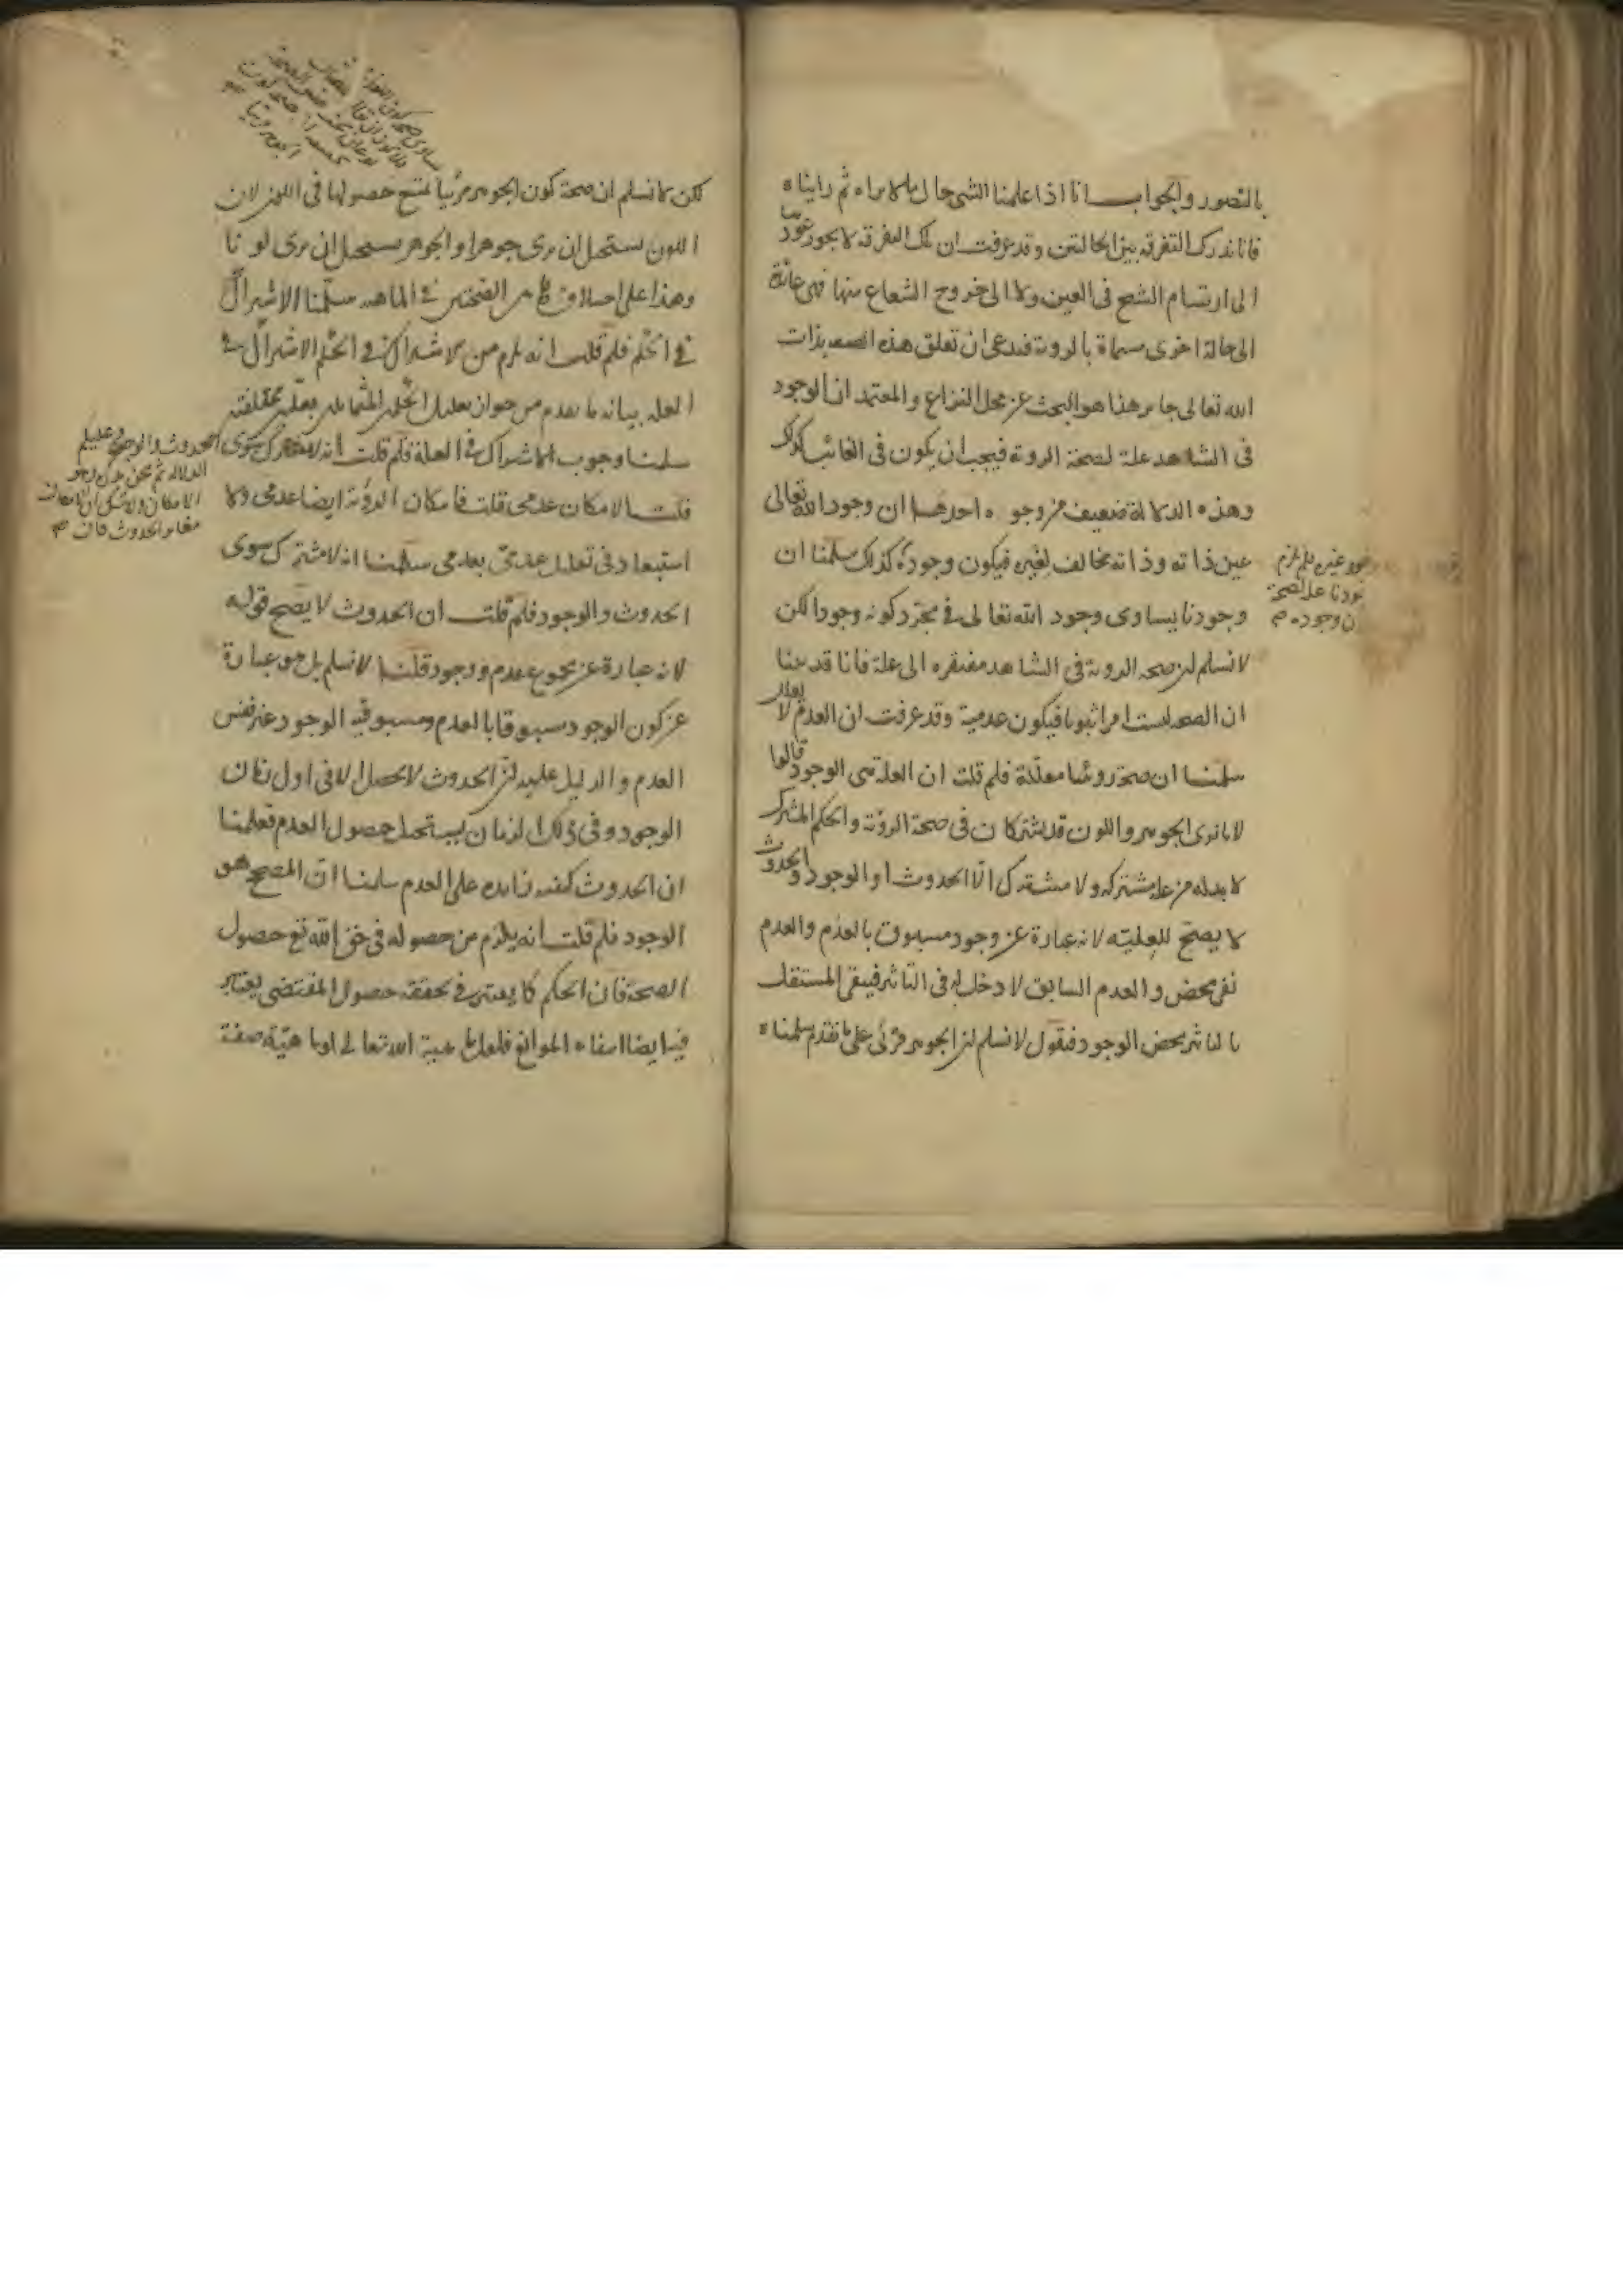 بالتصور والجواب انا اذا علمنا الشى حال ما لا نراه ثم رايناه
فانا ندرك التفرقة بين الحالتين وقد عرفت ان تلك التفرقة لا يجوز عودها
الى ارتسام الشبح فى العين ولا الى خروج الشعاع منها فهى عائدة
الى حالة اخرى مسماة بالرؤية فندعى ان تعلق هذه الصفة بذات
الله تعالى جايز هذا هو البحث عن محل النزاع والمعتمد ان الوجود
فى الشاهد علة لصحة الرؤية فيجب ان يكون فى الغائب كذلك
وهذه الدلالة ضعيفة من وجوه احدها ان وجود الله تعالى
عين ذاته وذاته مخالف لغيره فيكون وجوده كذلك سلمنا ان
وجودنا يساوى وجود الله تعالى فى مجرد كونه وجودا لكن
لا نسلم ان صحة الرؤية فى الشاهد مفتقرة الى علة فانا قد بينا
ان الصحة ليست امرا ثبوتيا فيكون عدمية وقد عرفت ان العدم لا يعلل
سلمنا ان صحة رؤيتنا معللة فلم قلت ان العلة هى الوجود قالوا
لانا نرى الجوهر واللون قد يشتركان فى صحة الرؤية والحكم المشترك
لا بد له من علة مشتركة ولا مشترك الا الحدوث او الوجود والحدوث
لا يصح للعلية لانه عبارة عن وجود مسبوق بالعدم والعدم
نفى محض والعدم السابق لا دخل له فى التاثير فيبقى المستقل
بالتاثير محض الوجود فنقول لا نسلم ان الجوهر مرئى على ما تقدم سلمناه
غيره فلم يلزم
وجودنا علة لصحة
وجوده
لكن لا نسلم ان صحة كون الجوهر مرئيا يمتنع حصولها فى اللون لان
اللون يستحيل ان يرى جوهرا والجوهر يستحيل ان يرى لونا
وهذا على الصحتين فى الماهية سلمنا الاشتراك
فى الحكم فلم قلت انه يلزم من الاشتراك فى الحكم الاشتراك فى
العلة بيانه ما تقدم من جواز تعليل الحكمين المتماثلين بعلتين مختلفتين
سلمنا وجوب الاشتراك فى العلة فلم قلت انه لا مشترك سوى
الحدوث والوجود وعليكم
الدلالة ثم نحن نذكر وهو
الامكان ولا شك ان الامكان
مغاير للحدوث فان
قلت الامكان عدمى قلت فامكان الرؤية ايضا عدمى ولا
استبعاد فى تعليل عدمى بعدمى سلمنا انه لا مشترك سوى
الحدوث والوجود فلم قلت ان الحدوث لا يصح قوله
لانه عبارة عن مجموع عدم ووجود قلنا لا نسلم بل هو عبارة
عن كون الوجود مسبوقا بالعدم ومسبوقية الوجود غير نفس
العدم والدليل عليه ان الحدوث لا يحصل الا فى اول زمان
الوجود وفى ذلك الزمان يستحيل حصول العدم فعلمنا
ان الحدوث كيفية زايدة على العدم سلمنا ان المصحح هو
الوجود فلم قلت انه يلزم من حصوله فى حق الله تع حصول
الصحة فان الحكم كما يعتبر فى تحققه حصول المقتضى يعتبر
فيه ايضا انتفاء الموانع فلعل ماهية الله تعالى او ماهية صفة